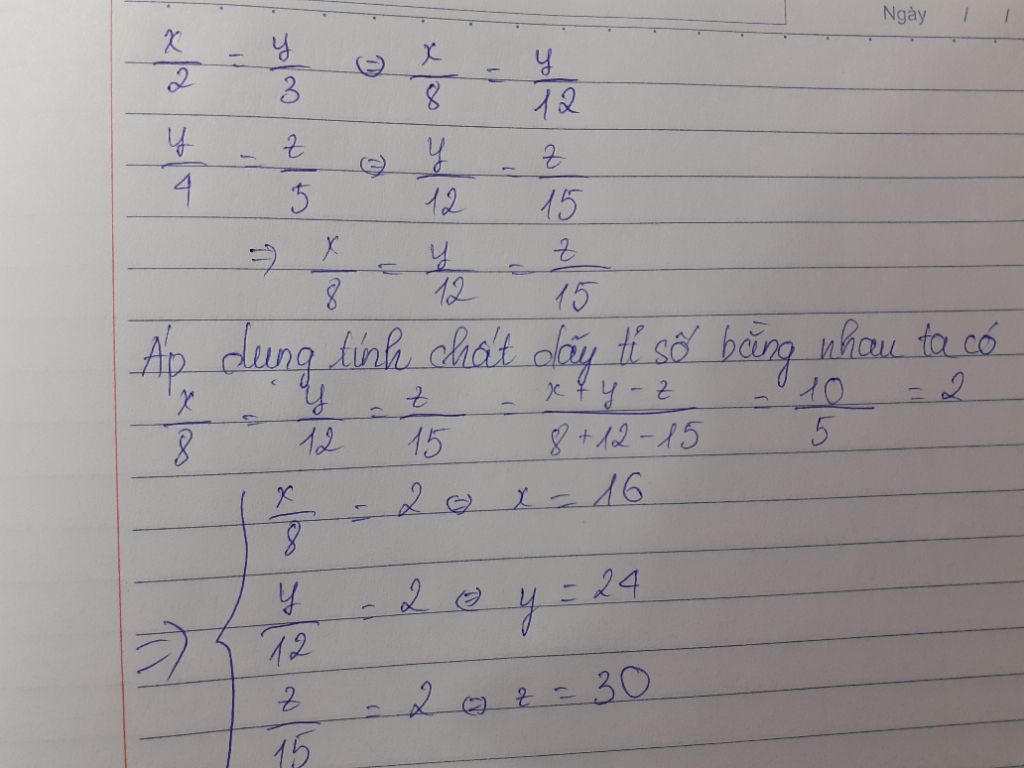 Ngày / /
x/2 = y/3 ⇔ x/8 = y/12
y/4 = z/5 ⇔ y/12 = z/15
⇒ x/8 = y/12 = z/15
Áp dụng tính chất dãy tỉ số bằng nhau ta có
x/8 = y/12 = z/15 = (x + y - z)/(8 + 12 - 15) = 10/5 = 2
⇒ { x/8 = 2 ⇔ x = 16
y/12 = 2 ⇔ y = 24
z/15 = 2 ⇔ z = 30